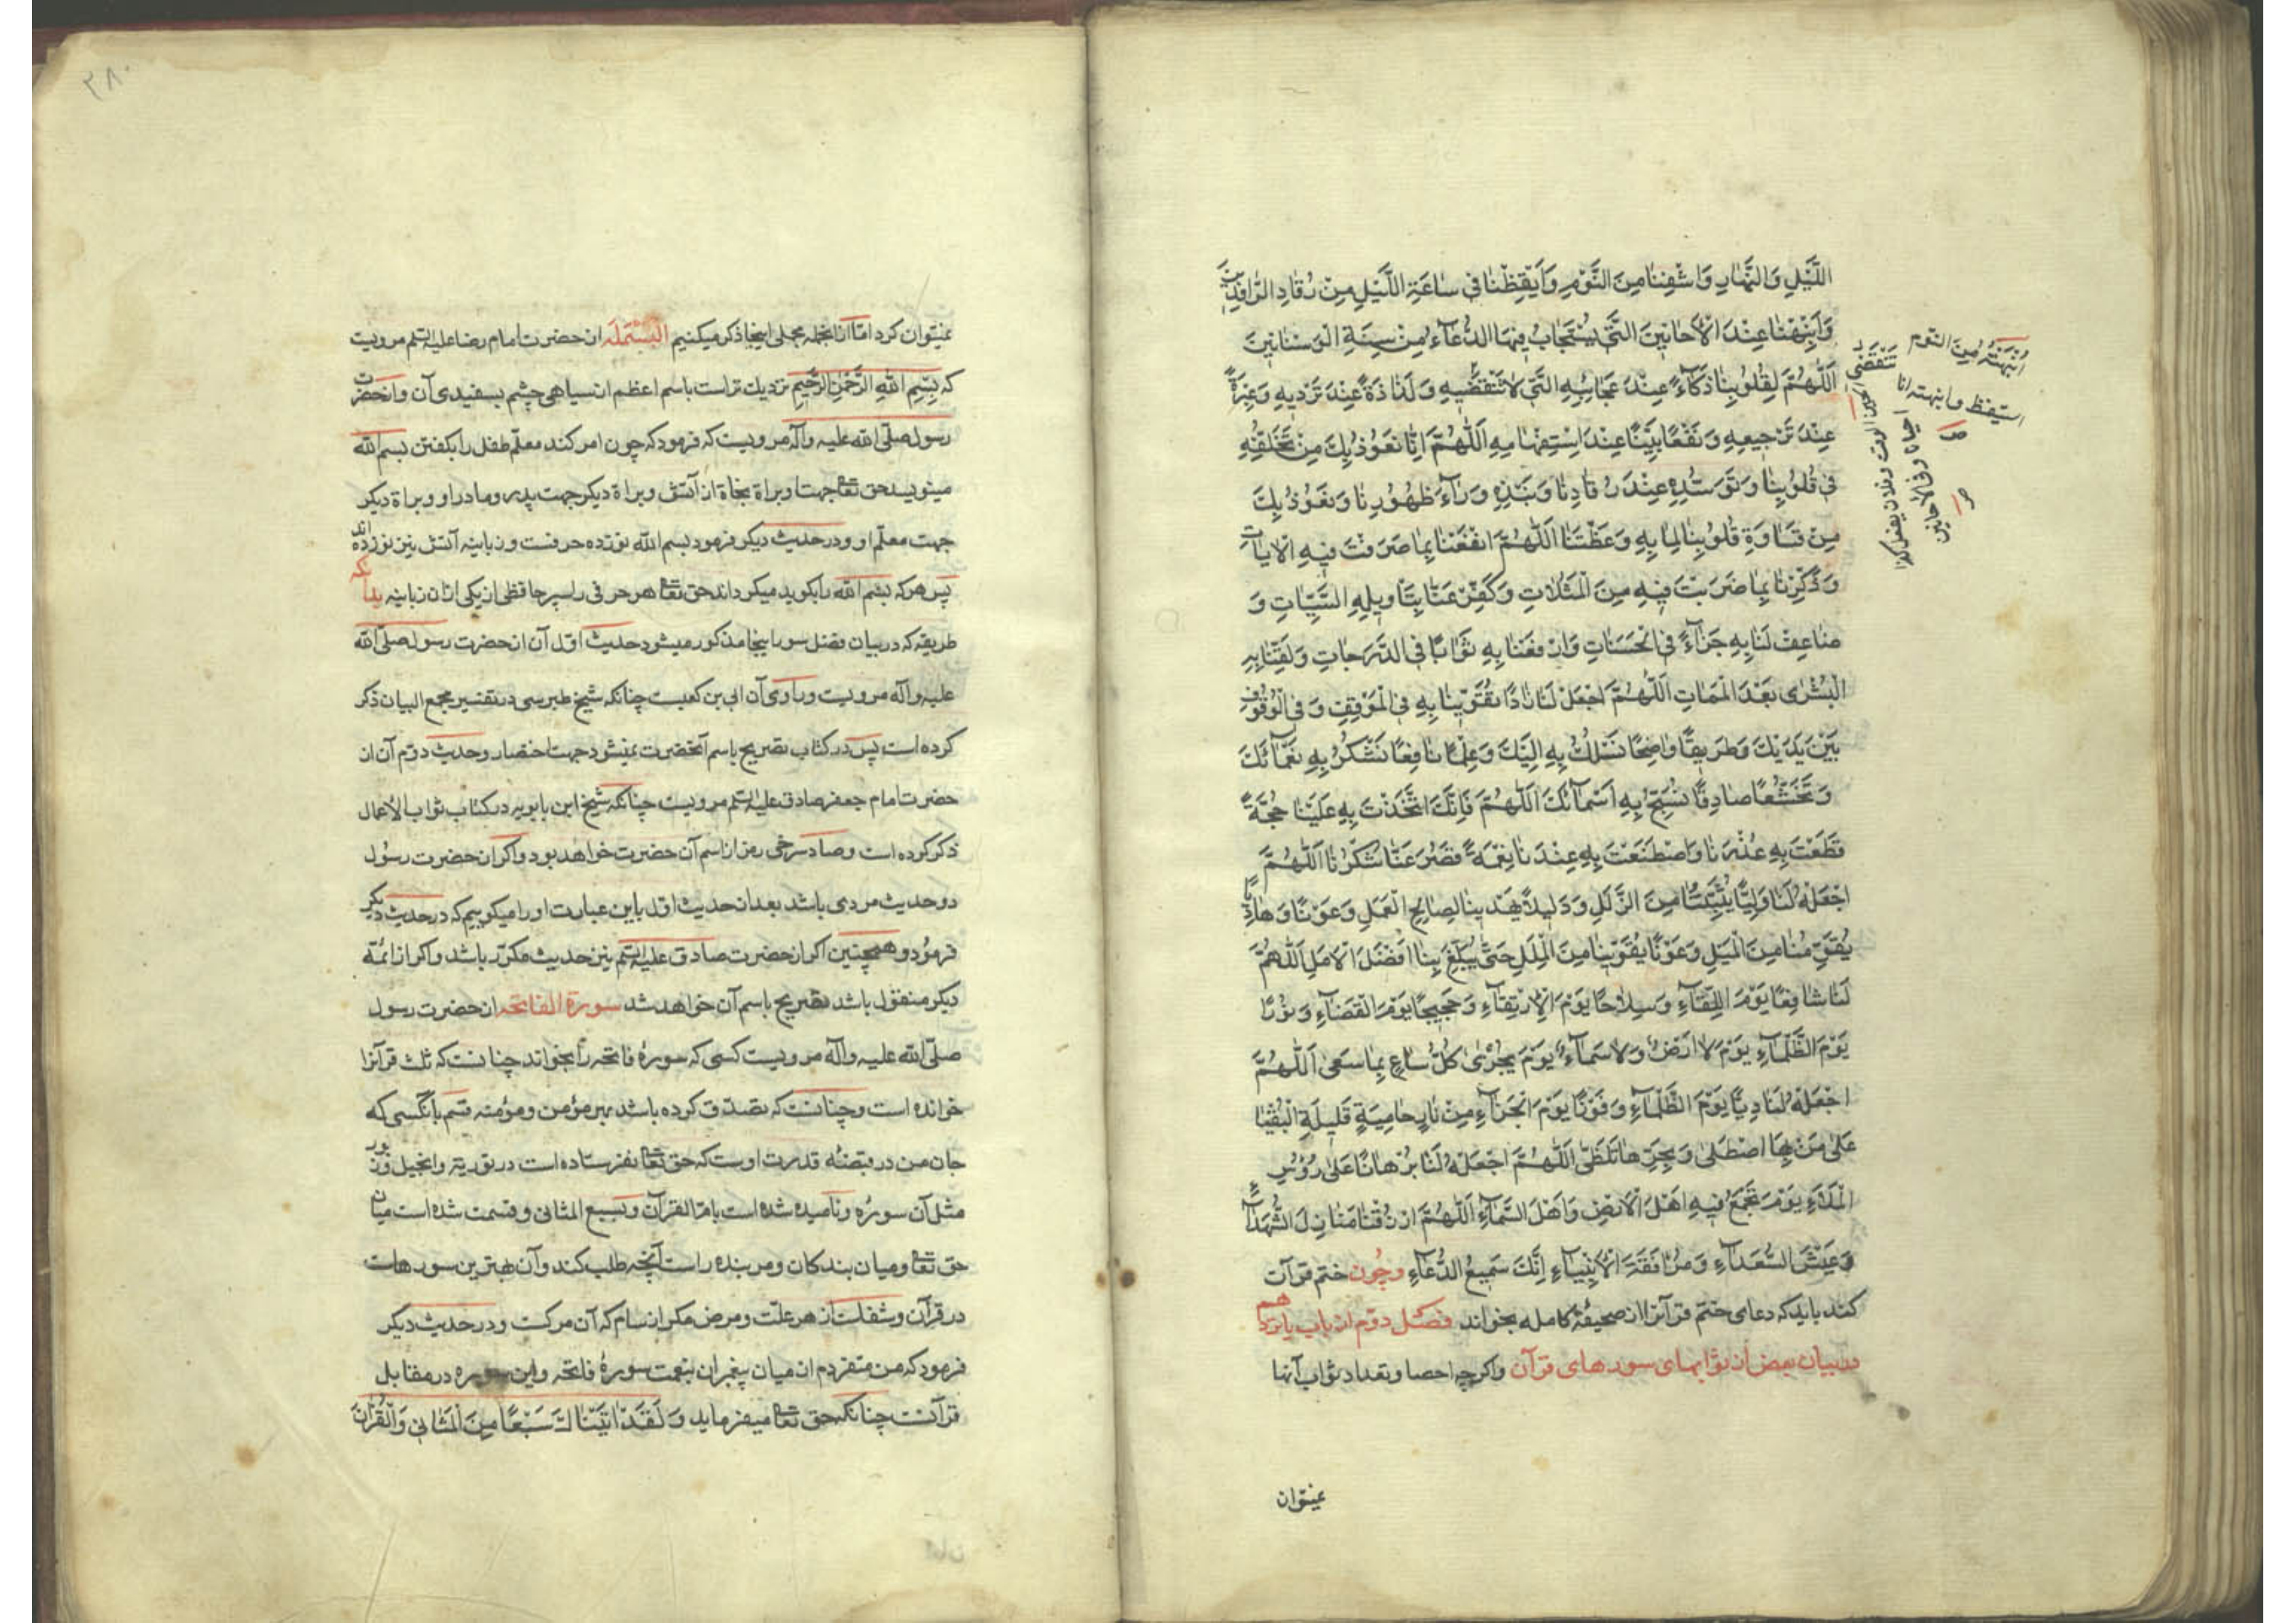 اللَّيْلِ وَالنَّهَارِ وَاشْفِنَا مِنَ النَّوْمِ وَاَيْقِظْنَا فِي سَاعَةِ اللَّيْلِ مِنْ رُقَادِ الرَّاقِدِينَ
وَاَنْبِهْنَا عِنْدَ الْاَحَائِينَ الَّتِي يُسْتَجَابُ فِيهَا الدُّعَآءُ مِنْ سِنَةِ الْوَسْنَانِينَ
اَللّٰهُمَّ لِقُلُوبِنَا ذَكَآءً عِنْدَ عَجَائِبِهِ الَّتِي لَا تَنْقَضِيهِ وَلَذَاذَةً عِنْدَ تَرْدِيهِ وَعِبْرَةً
عِنْدَ تَرْجِيعِهِ وَنَفْعًا بَيِّنًا عِنْدَ اسْتِفْهَامِهِ اَللّٰهُمَّ اِنَّا نَعُوذُ بِكَ مِنْ تَخَلُّفِهِ
فِي قُلُوبِنَا وَتَوَسُّدِهِ عِنْدَ رُقَادِنَا وَنَبْذِهِ وَرَآءَ ظُهُورِنَا وَنَعُوذُ بِكَ
مِنْ قَسَاوَةِ قُلُوبِنَا لِمَا بِهِ وَعَظْتَنَا اَللّٰهُمَّ انْفَعْنَا بِمَا صَرَفْتَ فِيهِ الْاٰيَاتِ
وَذَكِّرْنَا بِمَا ضَرَبْتَ فِيهِ مِنَ الْمَثُلَاتِ وَكَفِّرْ عَنَّا بِتَاْوِيلِهِ السَّيِّئَاتِ وَ
ضَاعِفْ لَنَا بِهِ جَزَآءً فِي الْحَسَنَاتِ وَارْفَعْنَا بِهِ ثَوَابًا فِي الدَّرَجَاتِ وَلَقِّنَا بِهِ
الْبُشْرٰى بَعْدَ الْمَمَاتِ اَللّٰهُمَّ اجْعَلْ لَنَا زَادًا تُقَوِّينَا بِهِ فِي الْمَوْقِفِ وَفِي الْوُقُوفِ
بَيْنَ يَدَيْكَ وَطَرِيقًا وَاضِحًا نَسْلُكُ بِهِ اِلَيْكَ وَعِلْمًا نَافِعًا نَشْكُرُ بِهِ نَعْمَآئَكَ
وَتَخَشُّعًا صَادِقًا نُسَبِّحُ بِهِ اَسْمَآئَكَ اَللّٰهُمَّ فَاِنَّكَ اتَّخَذْتَ بِهِ عَلَيْنَا حُجَّةً
قَطَعْتَ بِهِ عُذْرَنَا وَاصْطَنَعْتَ بِهِ عِنْدَنَا نِعْمَةً قَصُرَ عَنْهَا شُكْرُنَا اَللّٰهُمَّ
اجْعَلْهُ لَنَا وَلِيًّا يُثَبِّتُنَا مِنَ الزَّلَلِ وَدَلِيلًا يَهْدِينَا لِصَالِحِ الْعَمَلِ وَعَوْنًا وَهَادِيًا
يُقَوِّمُنَا مِنَ الْمَيْلِ وَعَوْنًا يُقَوِّينَا مِنَ الْمَلَلِ حَتّٰى يُبَلِّغَ بِنَا اَفْضَلَ الْاَمَلِ اَللّٰهُمَّ
لَنَا شَافِعًا يَوْمَ اللِّقَآءِ وَسِلَاحًا يَوْمَ الْاِرْتِقَآءِ وَحَجِيجًا يَوْمَ الْقَضَآءِ وَنُورًا
يَوْمَ الظَّلْمَآءِ يَوْمَ لَا اَرْضٌ وَلَا سَمَآءٌ يَوْمَ يُجْزٰى كُلُّ سَاعٍ بِمَا سَعٰى اَللّٰهُمَّ
اجْعَلْهُ لَنَا رِيًّا يَوْمَ الظَّمَآءِ وَفَوْزًا يَوْمَ الْجَزَآءِ مِنْ نَارٍ حَامِيَةٍ قَلِيلَةِ الْبُقْيَا
عَلٰى مَنْ بِهَا اصْطَلٰى وَبِحَرِّهَا تَلَظّٰى اَللّٰهُمَّ اجْعَلْهُ لَنَا بُرْهَانًا عَلٰى رُؤُسِ
الْمَلَآءِ يَوْمَ يُجْمَعُ فِيهِ اَهْلُ الْاَرْضِ وَاَهْلُ السَّمَآءِ اَللّٰهُمَّ ارْزُقْنَا مَنَازِلَ الشُّهَدَآءِ
وَعَيْشَ السُّعَدَآءِ وَمُرَافَقَةَ الْاَنْبِيَآءِ اِنَّكَ سَمِيعُ الدُّعَآءِ وچون ختم قرآن
کند باید که دعای ختم قرآنرا از صحیفهٔ کامله بخواند فصل دوم از باب یازدهم
در بیان بعض از ثوابهای سورهای قرآن واکرچه احصا وتعداد ثواب آنها
نمیتوان
انبهته من النوم
استیقظ وانبهته انا
تنقضی
۲۸۰
نمیتوان کرد اما از انجمله مجملی اینجا ذکر میکنیم البسملة از حضرت امام رضا علیه السلم مرویست
که بِسْمِ اللهِ الرَّحْمٰنِ الرَّحِيمِ نزدیك تر است باسم اعظم از سیاهی چشم بسفیدی آن واز حضرت
رسول صلی الله علیه وآله مرویست که فرمود که چون امر کند معلم طفل را بکفتن بسم الله
مینویسد حق تعا جهت او براة نجاة از آتش وبراة دیکر جهت پدر ومادر او وبراة دیکر
جهت معلم او ودر حدیث دیکر فرمود بسم الله نوزده حرفست وزبانیه آتش نیز نوزده اند
پس هر که بسم الله را بکوید میکرداند حق تعا هر حرفی را سپر حافظی از یکی ازان زبانیه بدانکه
طریقه که در بیان فضل سور اینجا مذکور میشود حدیث اول آن از حضرت رسول صلی الله
علیه وآله مرویست وراوی آن ابی بن کعبست چنانکه شیخ طبرسی در تفسیر مجمع البیان ذکر
کرده است پس در کتاب تصریح باسم آنحضرت نمیشود جهت اختصار وحدیث دوم آن از
حضرت امام جعفر صادق علیه السلم مرویست چنانکه شیخ ابن بابویه در کتاب ثواب الاعمال
ذکر کرده است وصاد سرخی رمز از اسم آن حضرت خواهد بود واکر از حضرت رسول
دو حدیث مروی باشد بعد از حدیث اول باین عبارت اورا میکوییم که در حدیث دیکر
فرمود وهمچنین اکر از حضرت صادق علیه السلم نیز حدیث مکرر باشد واکر از ائمه
دیکر منقول باشد تصریح باسم آن خواهد شد سورة الفاتحه از حضرت رسول
صلی الله علیه وآله مرویست کسی که سورهٔ فاتحه را بخواند چنانست که ثلث قرآنرا
خوانده است وچنانست که تصدق کرده باشد بهر مؤمن ومؤمنه قسم بآنکسی که
جان من در قبضهٔ قدرت اوست که حق تعا نفرستاده است در توریة وانجیل وزبور
مثل آن سوره ونامیده شده است بام القرآن وسبع المثانی وقسمت شده است میان
حق تعا ومیان بندکان ومر بنده راست آنچه طلب کند وآن بهترین سورهاست
در قرآن وشفاست از هر علت ومرض مکر از سام که آن مرکست ودر حدیث دیکر
فرمود که من متفردم از میان پیغمبران بنعمت سورهٔ فاتحه واین سوره در مقابل
قرآنست چنانکه حق تعا میفرماید وَلَقَدْ اٰتَيْنَاكَ سَبْعًا مِنَ الْمَثَانِي وَالْقُرْاٰنَ